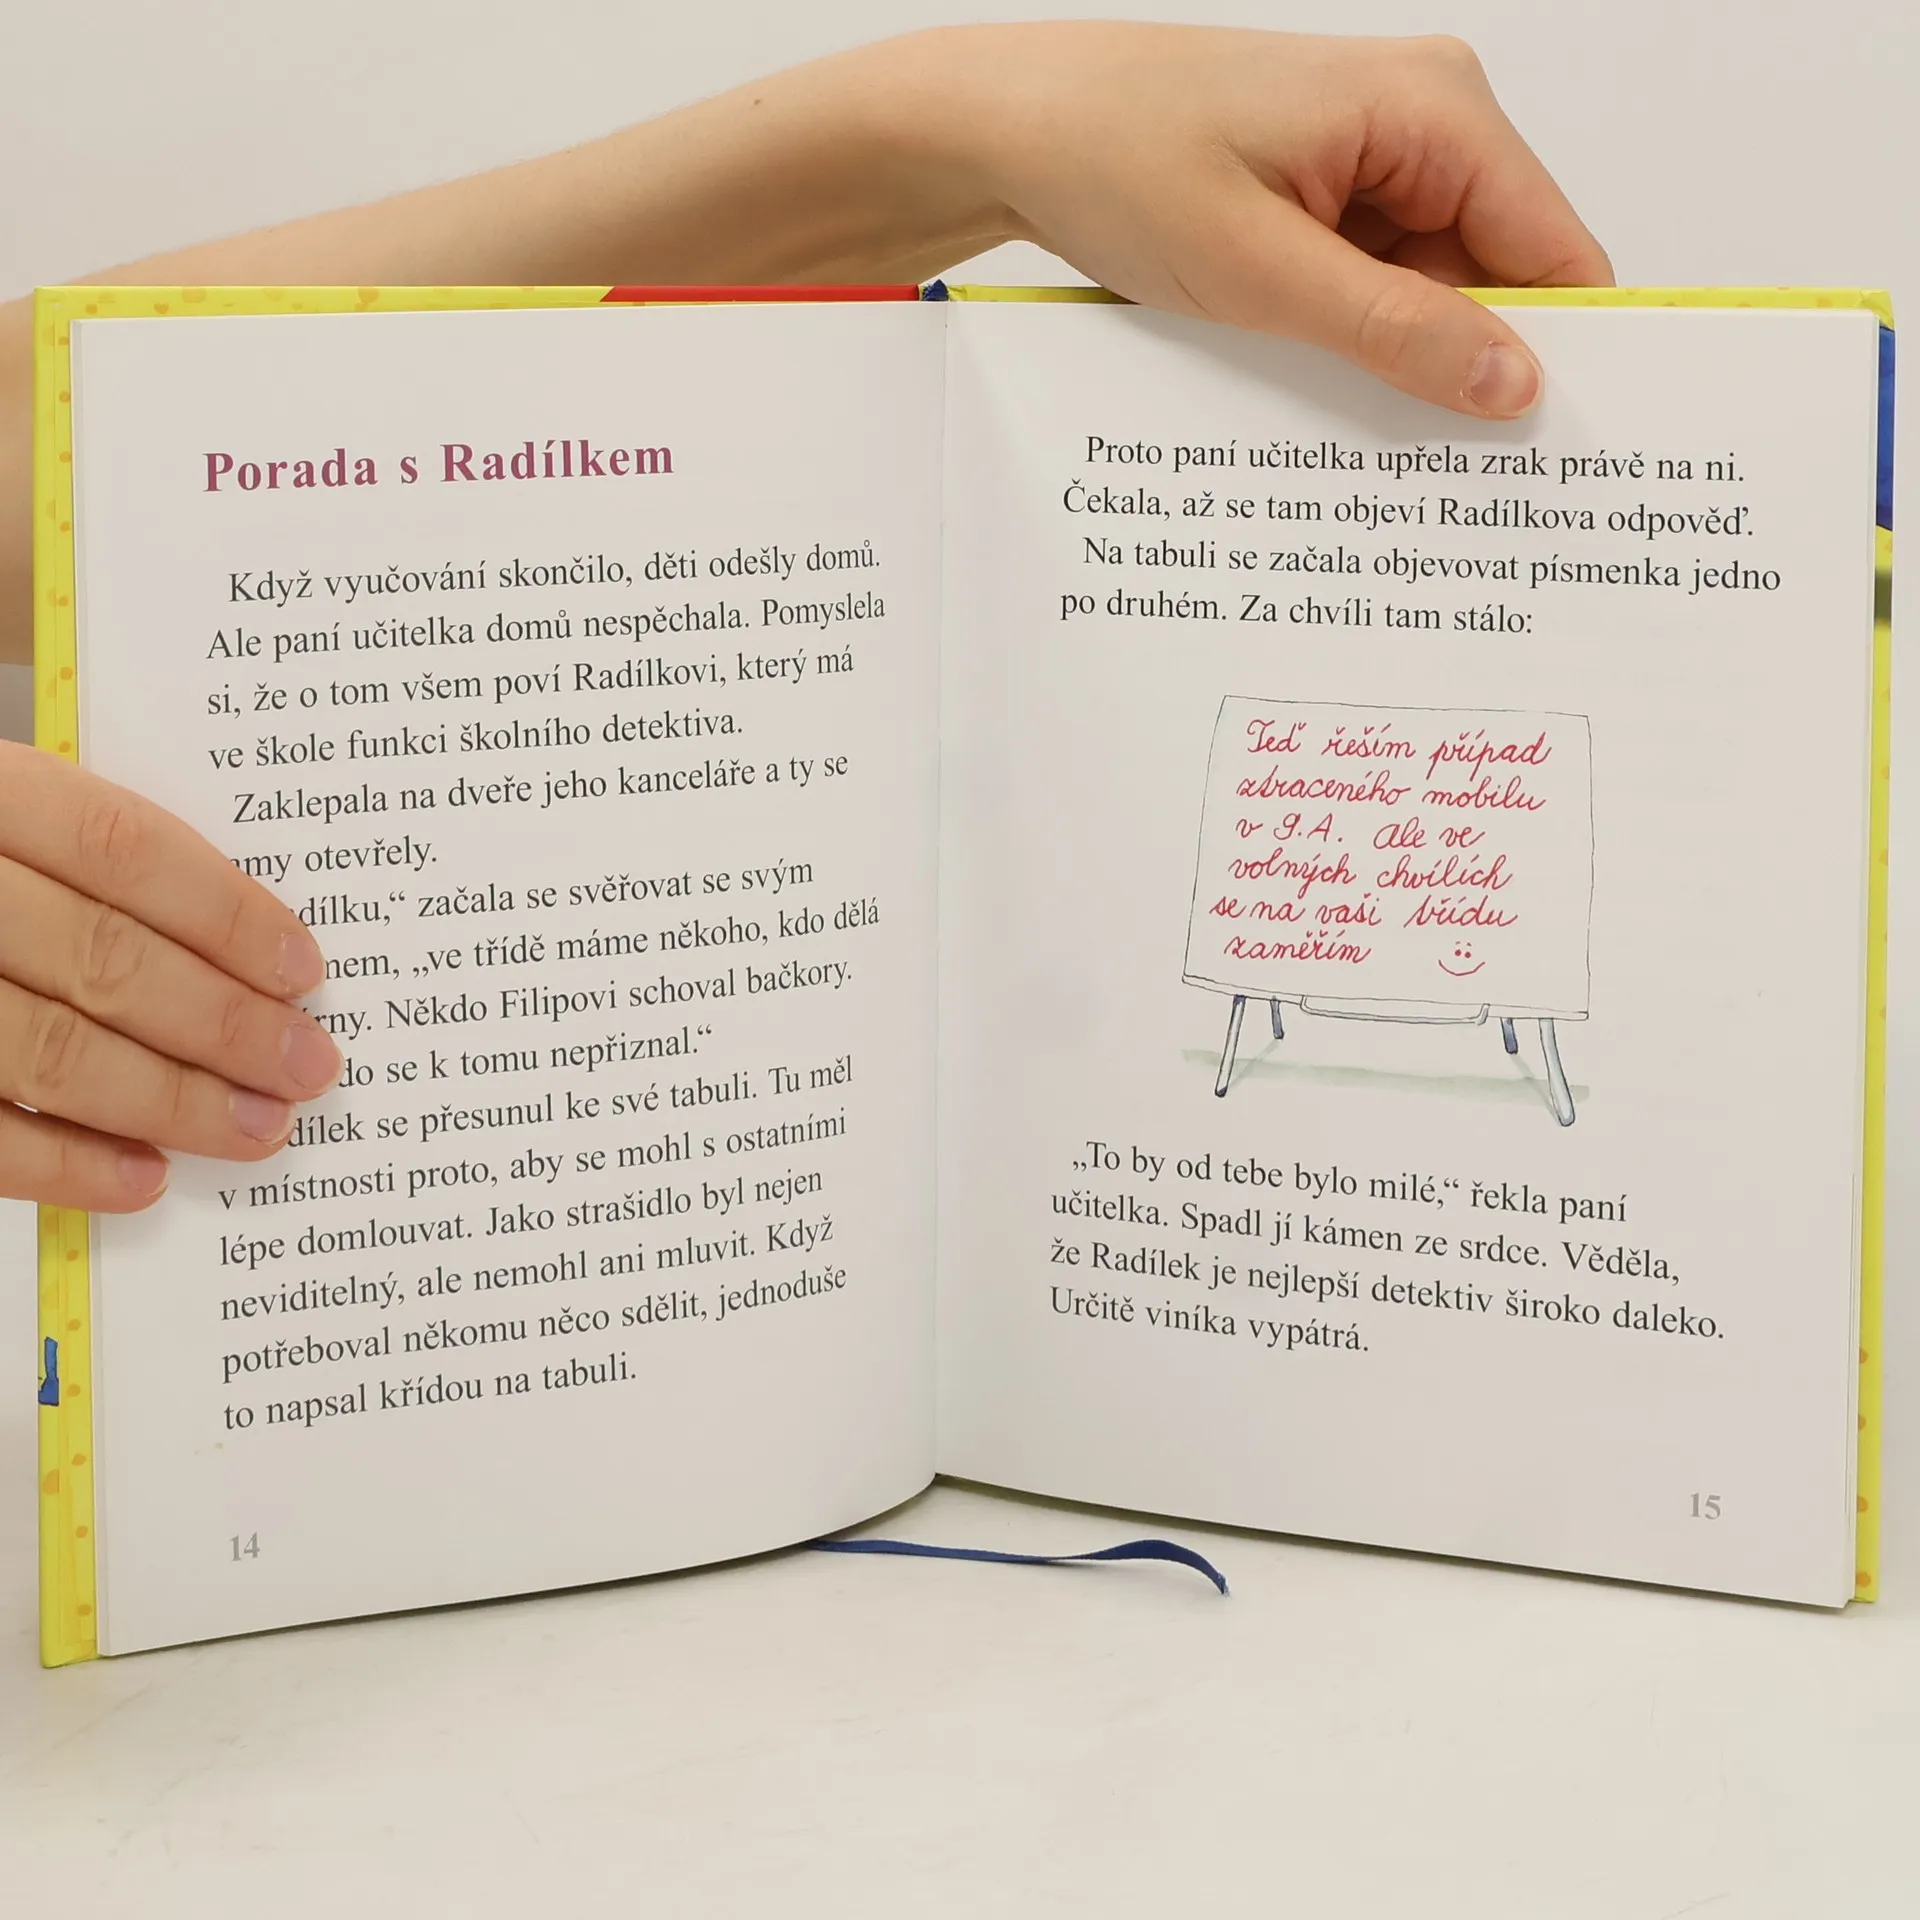 Porada s Radílkem
Když vyučování skončilo, děti odešly domů.
Ale paní učitelka domů nespěchala. Pomyslela
si, že o tom všem poví Radílkovi, který má
ve škole funkci školního detektiva.
Zaklepala na dveře jeho kanceláře a ty se
otevřely.
začala se svěřovat se svým
„ve třídě máme někoho, kdo dělá
Někdo Filipovi schoval bačkory.
se k tomu nepřiznal.“
se přesunul ke své tabuli. Tu měl
v místnosti proto, aby se mohl s ostatními
lépe domlouvat. Jako strašidlo byl nejen
neviditelný, ale nemohl ani mluvit. Když
potřeboval někomu něco sdělit, jednoduše
to napsal křídou na tabuli.
14
Proto paní učitelka upřela zrak právě na ni.
Čekala, až se tam objeví Radílkova odpověď.
Na tabuli se začala objevovat písmenka jedno
po druhém. Za chvíli tam stálo:
Teď řeším případ
ztraceného mobilu
v 9.A. Ale ve
volných chvílích
se na vaši třídu
zaměřím
„To by od tebe bylo milé,“ řekla paní
učitelka. Spadl jí kámen ze srdce. Věděla,
že Radílek je nejlepší detektiv široko daleko.
Určitě viníka vypátrá.
15